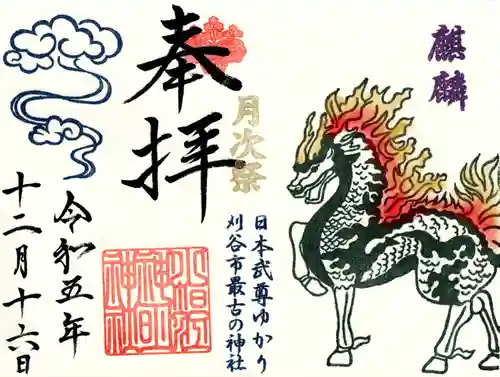 麒麟
奉拝
月次祭
日本武尊ゆかり
刈谷市最古の神社
小垣江
神明
神社
令和五年
十二月十六日